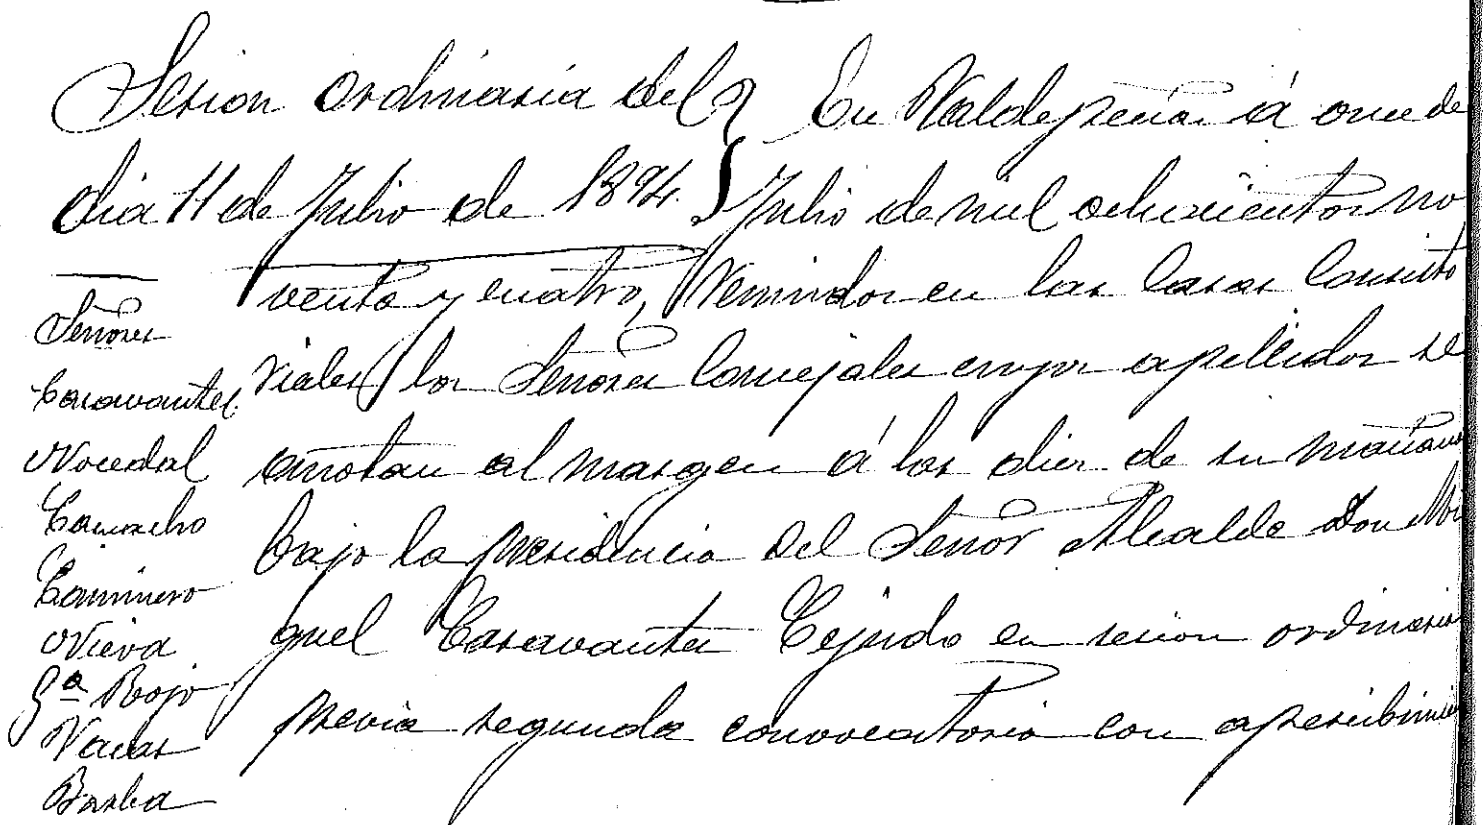 Sesion ordinaria del
dia 11 de Julio de 1894.
Señores
Caravantes
Nocedal
Camacho
Caminero
Nieva
Gª Rojo
Vacas
Barba
En Valdepeñas á once de
Julio de mil ochocientos no
venta y cuatro, Reunidos en las Casas Consisto
riales los Señores Concejales cuyos apellidos se
anotan al margen á las diez de su mañana
bajo la presidencia del Señor Alcalde Don Mi
guel Caravantes Tejido en sesion ordinaria
previa segunda convocatoria con apercibimi